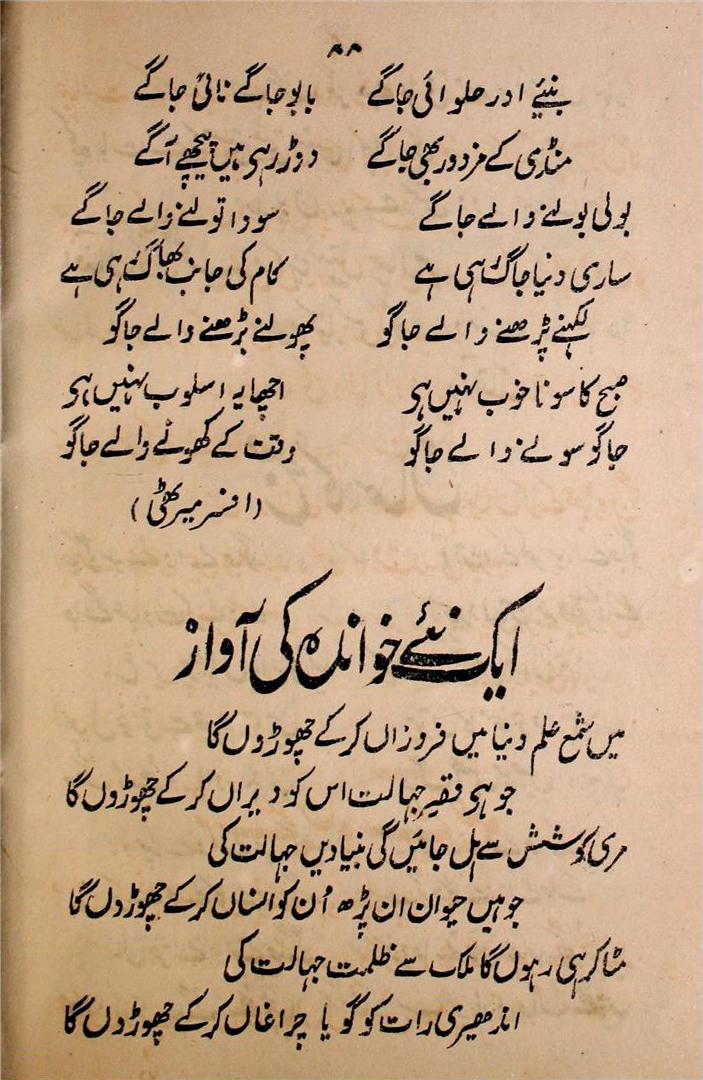 ۸۸
بنیئے اور حلوائی جاگے بابو جاگے نائی جاگے
منڈی کے مزدور بھی جاگے دوڑ رہی ہیں پیچھے آگے
بولی بولنے والے جاگے سودا تولنے والے جاگے
ساری دنیا جاگ رہی ہے کام کی جانب بھاگ رہی ہے
لکھنے پڑھنے والے جاگو پھولنے بڑھنے والے جاگو
صبح کا سونا خوب نہیں ہی اچھا یہ اسلوب نہیں ہی
جاگو سونے والے جاگو وقت کے کھونے والے جاگو
(افسر میرٹھی)
ایک نئے خواندہ کی آواز
میں شمع علم دنیا میں فروزاں کر کے چھوڑوں گا
جو ہی قصر جہالت اس کو ویراں کر کے چھوڑوں گا
مری کوشش سے ہل جائیں گی بنیادیں جہالت کی
جو ہیں حیوان ان پڑھ اُن کو انساں کر کے چھوڑدں گا
مٹا کر ہی رہوں گا ملک سے ظلمت جہالت کی
اندھیری رات کو گویا چراغاں کر کے چھوڑدں گا